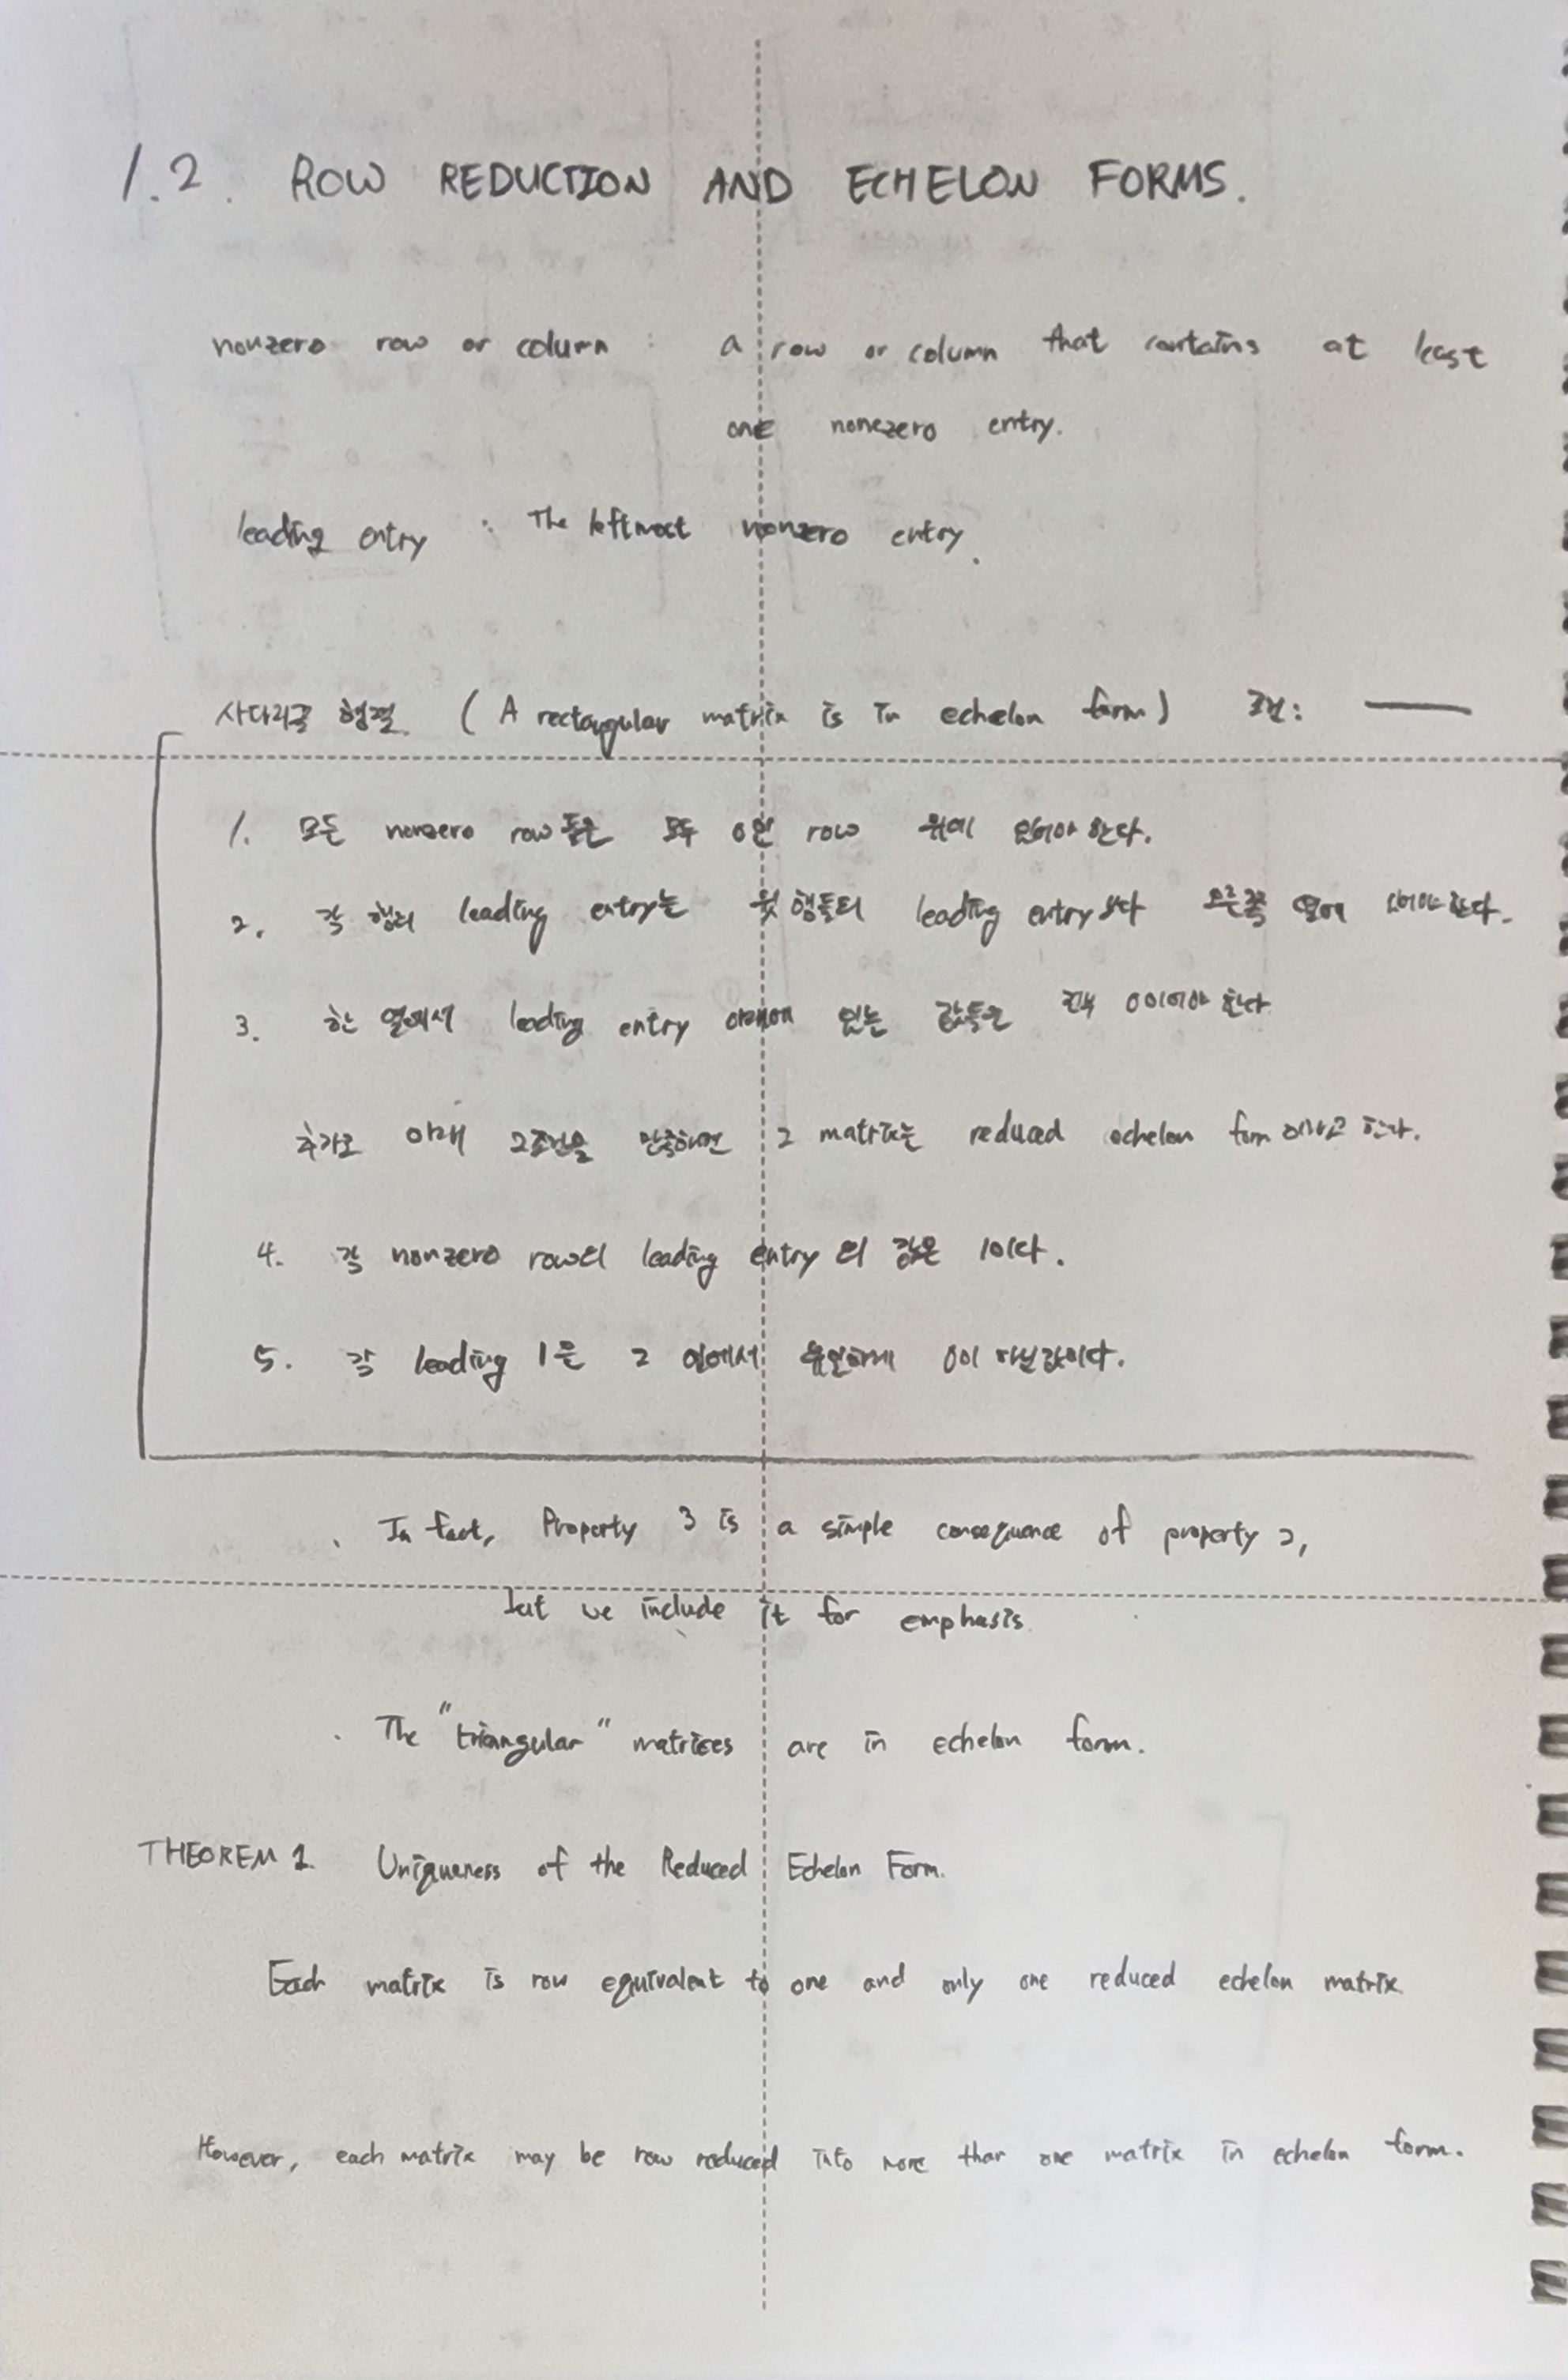 1.2. ROW REDUCTION AND ECHELON FORMS.
nonzero row or column : a row or column that contains at least
one nonezero entry.
leading entry : The leftmost nonzero entry.
사다리꼴 행렬. ( A rectangular matrix is in echelon form ) 조건:
1. 모든 nonzero row들은 모두 0인 row 위에 있어야 한다.
2. 각 행의 leading entry는 윗 행들의 leading entry보다 오른쪽 열에 있어야 한다.
3. 한 열에서 leading entry 아래에 있는 값들은 전부 0이어야 한다
추가로 아래 2조건을 만족하면 그 matrix는 reduced echelon form 이라고 한다.
4. 각 nonzero row의 leading entry 의 값은 1이다.
5. 각 leading 1은 그 열에서 유일하게 0이 아닌 값이다.
. In fact, Property 3 is a simple consequence of property 2,
but we include it for emphasis.
. The "triangular" matrices are in echelon form.
THEOREM 1. Uniqueness of the Reduced Echelon Form.
Each matrix is row equivalent to one and only one reduced echelon matrix.
However, each matrix may be row reduced into more than one matrix in echelon form.